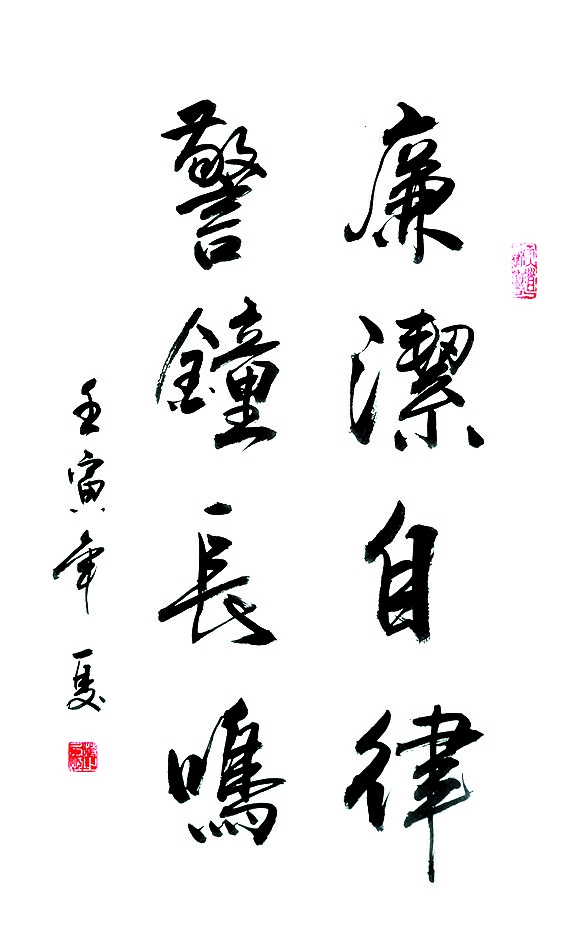 廉潔自律
警鐘長鳴
壬寅年夏